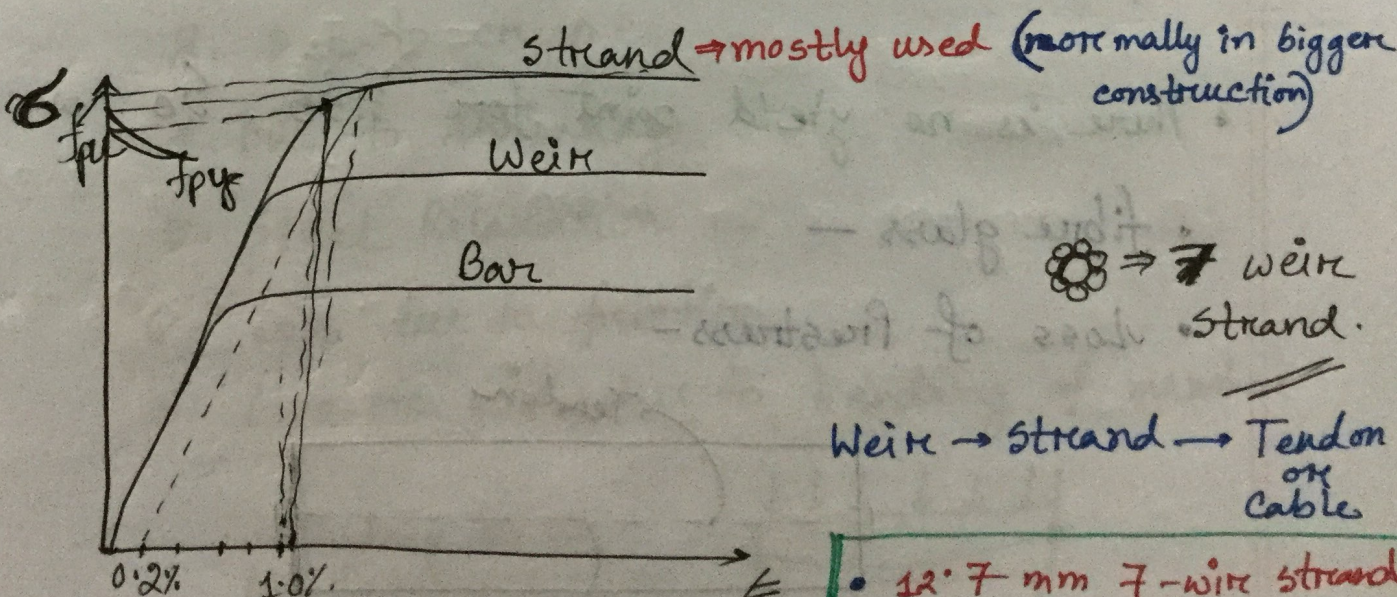 Strand ⇒ mostly used (normally in bigger
construction)
σ
fpu
fpy
Weir
Bar
⇒ 7 weir
strand.
Weir → Strand → Tendon
or
Cable
0.2% 1.0%.
• 12.7 mm 7-wire strand